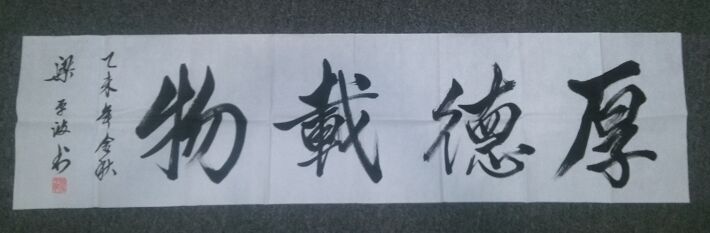 厚德載物
乙未年金秋
梁平波书